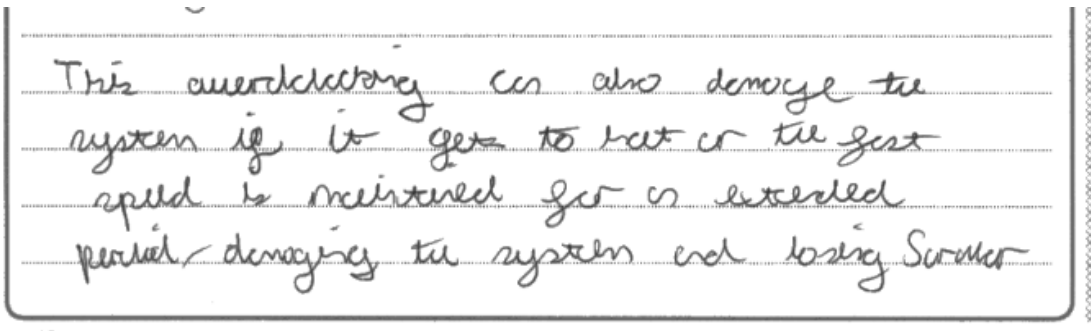 This overclocking can also damage the
system if it gets to hot or the fast
speed is maintained for an extended
period, damaging the system and losing